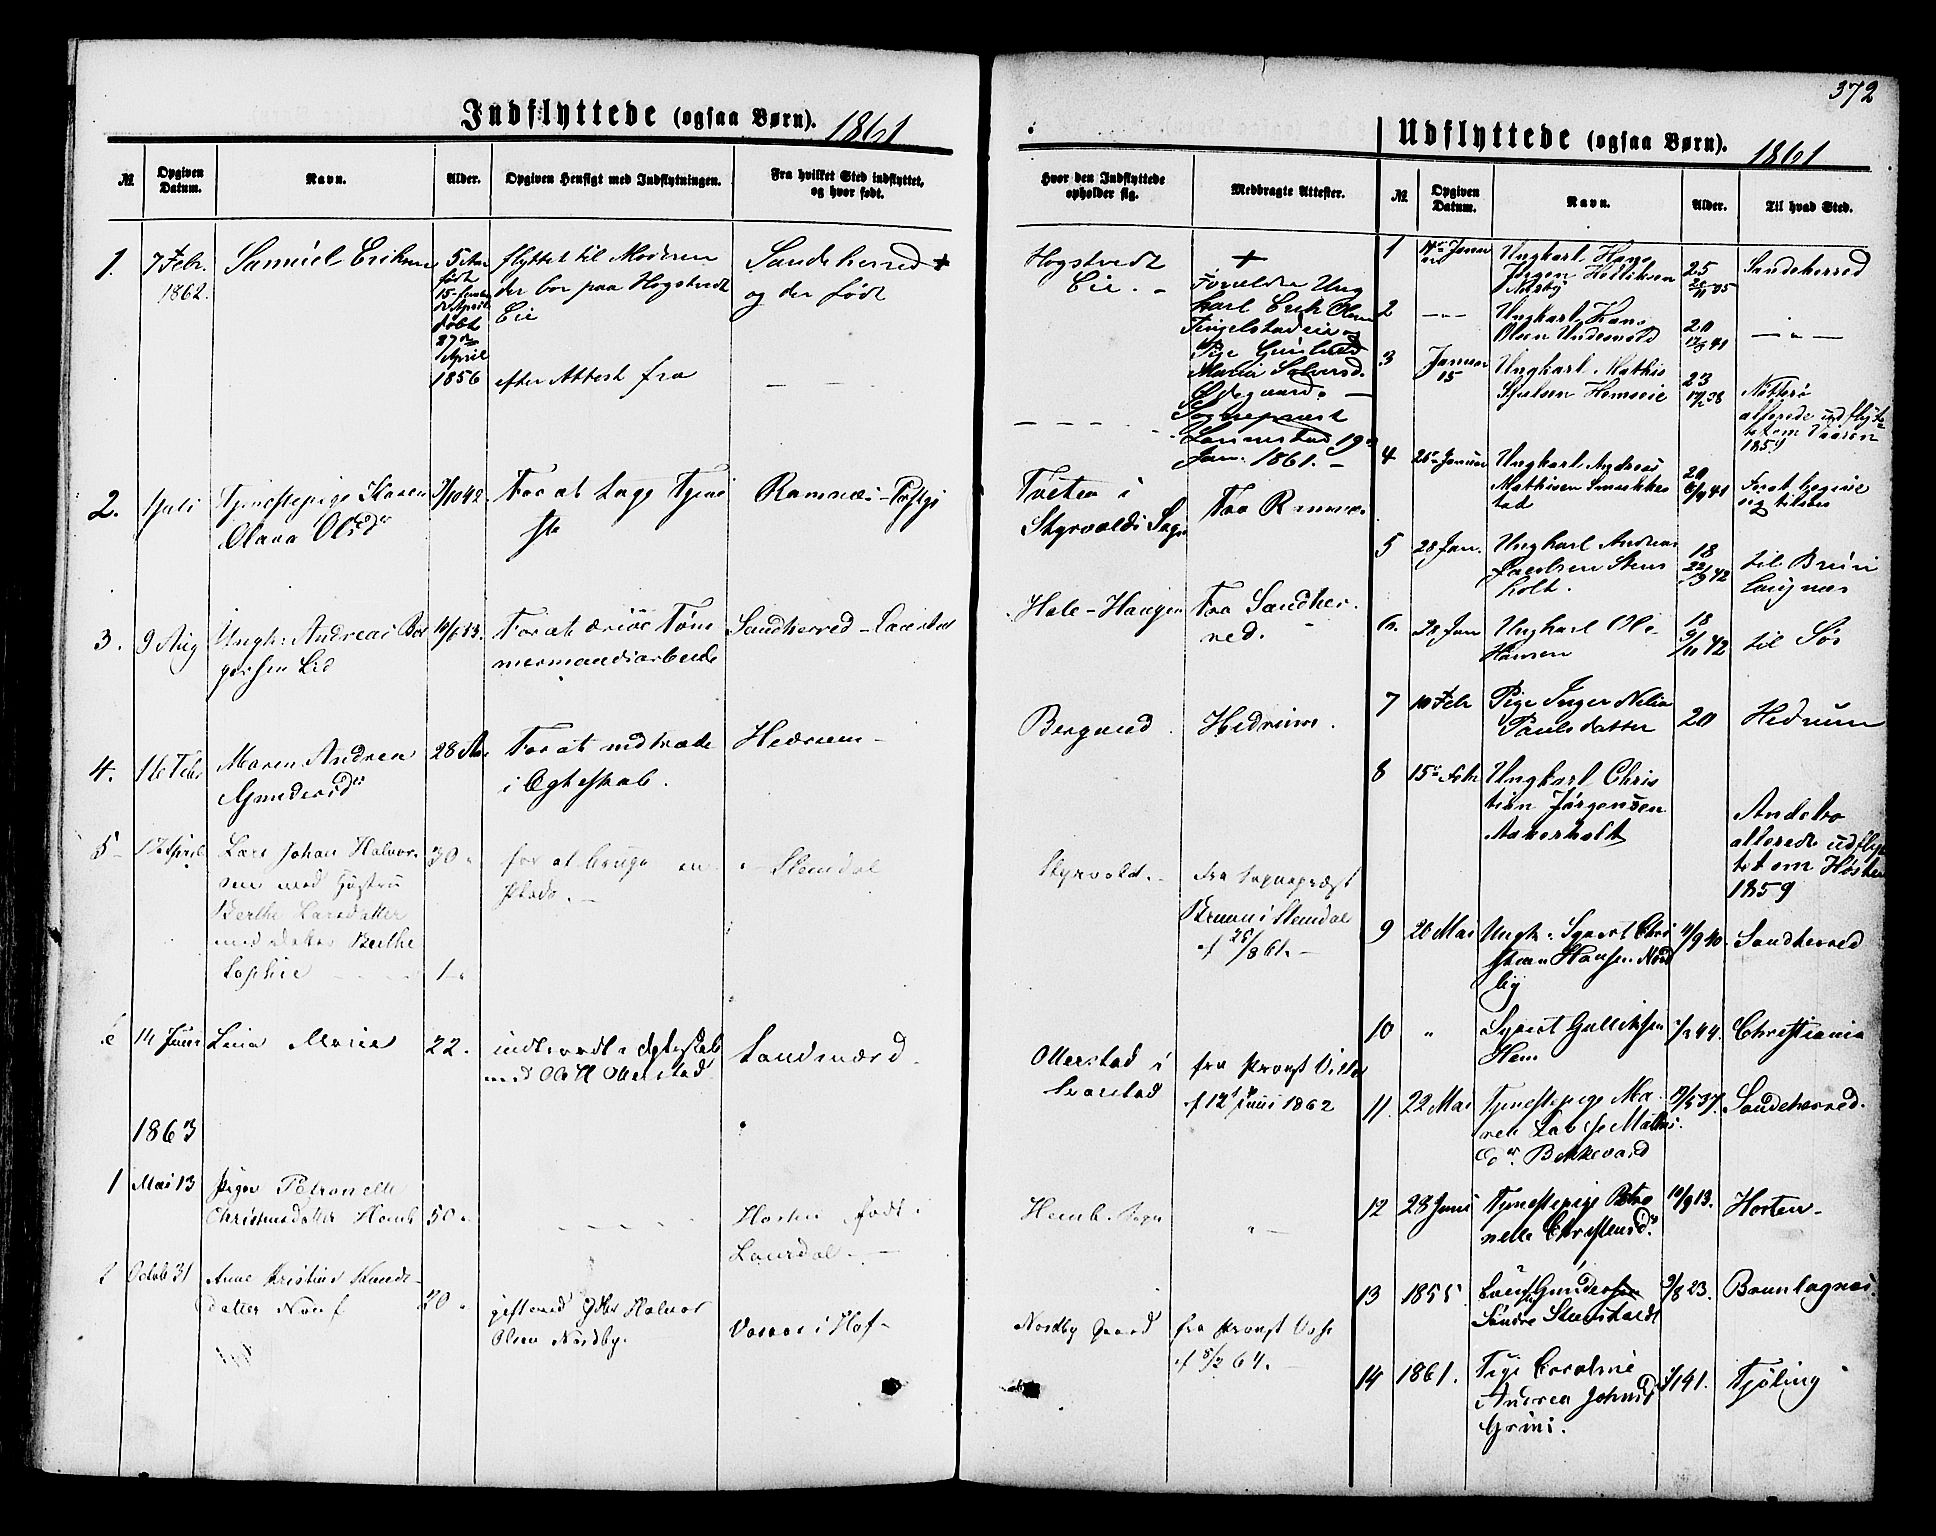 372
Indflyttede (ogsaa Børn). 1861
№
Opgiven Datum.
Navn.
Alder.
Opgiven Hensigt med Indflytningen.
Fra hvilket Sted indflyttet, og hvor født.
Hvor den Indflyttede opholder sig.
Medbragte Attester.
1.
7 Febr. 1862.
Samuel Eriksen
5 Aar
født
15
April
døbt
27de
April
1856
flyttet til Moderen
der bor paa Hogstvedt
Eie
efter Attest fra
Sandeherred +
og der født
Hogstvedt
Eie. -
+
Forældre Ung
karl Erik Olsen
Tingelstadeie og
Pige
Maria
Ødegaard. -
Sognepræst
19de
Jan. 1861. -
2.
1 Juli
Tjenestepige Karen
Olava Olsdr
3/10 42
For at tage Tjene
ste
Ramnæs Præstgj
Tveten i
Styrvolds Sogn
Fra Ramnæs
3.
9 Aug
Ungk: Andreas Bør
gersen Lid
10/6 13.
For at drive Tøm
mermandsarbeide
Sandherred -
Hole-Haugen
Fra Sandher
red.
4.
16 Febr
Maren Andrea
Gundersdr
28 Aar
For at indtræde
i Egteskab.
Hedrum -
Bergund.
Hedrum.
5
17 April
Lars Johan Halvor
sen med Hustru
Berthe Larsdatter
med datter Berthe
Sophie
30 "
1 "
for at bruge en
Plads. -
Slemdal
Styrvold. -
fra Sognepræst
Bruun i Slemdal
af 25/8 61. -
6
14 Juni
Lina Maria
22.
indtrædt i Egteskab
med Ole H Ollerstad
Sandeherred.
Ollerstad i
Skorstad
fra Provst
af 12 Juni 1862
1863
1
Mai 13
Pigen Petronelle
Christensdatter Hemb
50 "
Horten født i
Laurdal. -
Hemb. Sogn
" -
2
Octob 31
Ane Kristine
datter
20 "
gift med Gbr Halvor
Olsen Nordby.
i Hof -
Nordby Gaard
fra Provst
af 5/2 64. -
Udflyttede (ogsaa Børn). 1861
№
Opgiven Datum.
Navn.
Alder.
Til hvad Sted.
1
14de Januar
Ungkarl Hans
Jørgen
Næsby
25
Sandeherred
2
- " -
Ungkarl Hans
Olsen
20
- " -
3
Januar
15
Ungkarl Mathis
Hemseie
23
Nøtterø
allerede udflyt
tet om Vaaren
1859
4
25de Januar
Ungkarl Andreas
Mathisen
20
For at begive
sig tilsøes
5
28 Jan.
Ungkarl Andreas
Jacobsen Stens
holt.
18
22/3 42
til Brun
laugnæs
6.
28 Jan
Ungkarl Ole
Hansen
18
9/11 42
til Søs
7
10 Febr
Pige Inger Nelia
Paulsdatter
20
Hedrum
8
15de Febr
Ungkarl Chris
tian Jørgensen
Aakerholt
Andebo
allerede udflyt
tet om Høsten
1859
9
20 Mai
Ungk: Syvert Chri
stian Hansen Nord
by
11/9 40
Sandherred
10
"
Syvert Gulliksen
Hem
1/2 44.
Christiania
11.
22 Mai
Tjenestepige Ma
ren Lovise Mathis
dr. Bekkevard
17/5 37.
Sandeherred.
12
28 Juni
Tjenestepige Petro
nelle Christensdr.
10/9 13.
Horten -
13
1855.
Gundersen
Søndre Stensholdt
9/8 23.
Brunlagnæs.
14
1861.
Pige Caroline
Andrea Johnsd
Grini.
41.
Tjøling